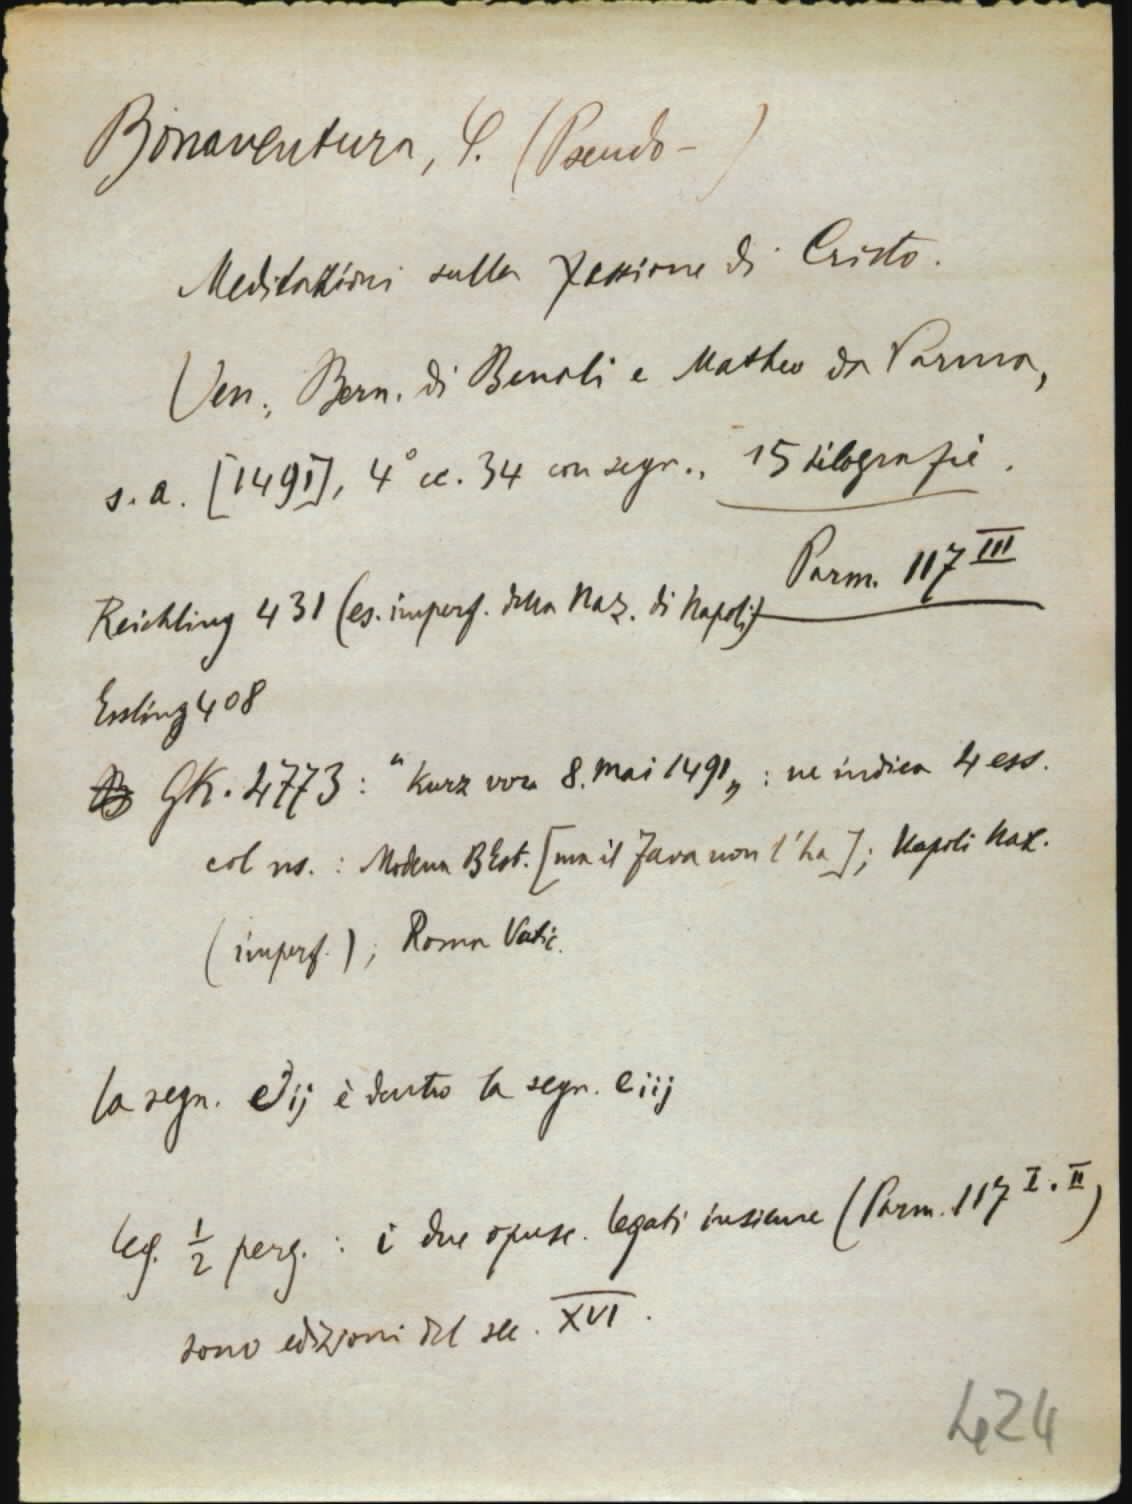 Bonaventura, S. (Pseudo-)
Meditazioni sulla passione di Cristo.
Ven., Bern. di Benali e Matheo da Parma,
s. a. [1491], 4° cc. 34 con segn., 15 silografie.
Parm. 117 III
Reichling 431 (es. imperf. della Naz. di Napoli)
Essling 408
GK. 4773: "Kurz vor 8. Mai 1491„: ne indica 4 ess.
col ns.: Modena BEst. [ma il Fava non l'ha]; Napoli Naz.
(imperf.); Roma Vatic.
la segn. eij è dentro la segn. eiij
leg. 1/2 perg.: i due opusc. legati insieme (Parm. 117 I. II)
sono edizioni del sec. XVI.
424